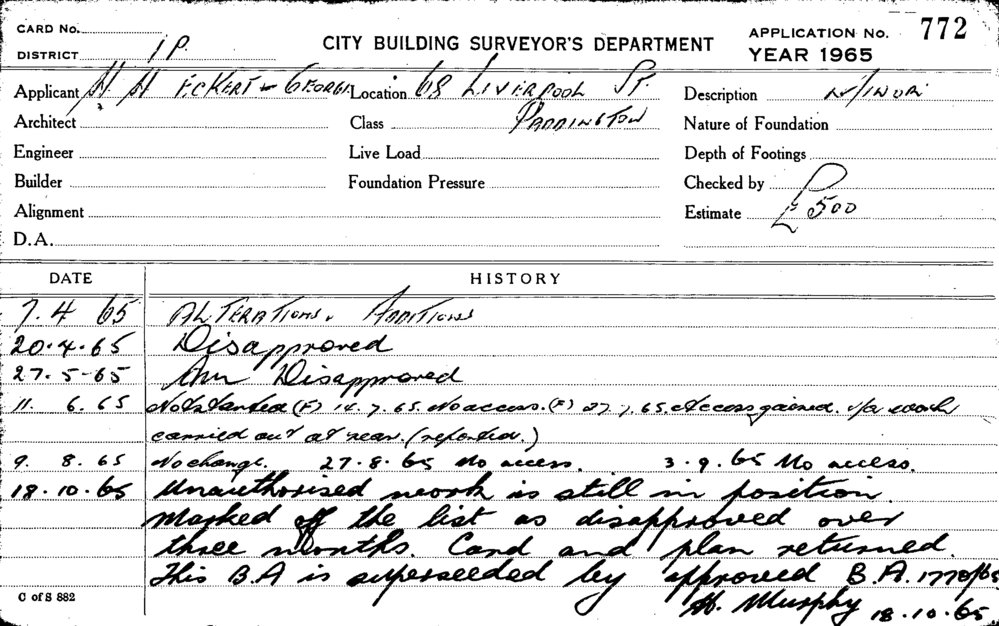 CARD No.
DISTRICT 1P.
CITY BUILDING SURVEYOR'S DEPARTMENT
APPLICATION No. 772
YEAR 1965
Applicant H H ECKERT - GEORGE Location 68 LIVERPOOL ST. Description MINOR
Architect Class PADDINGTON Nature of Foundation
Engineer Live Load Depth of Footings
Builder Foundation Pressure Checked by
Alignment Estimate £500
D.A.
DATE HISTORY
7.4 65 ALTERATIONS. ADDITIONS
20.4.65 Disapproved
27.5-65 Disapproved
11. 6.65 Not started (F) 14.7.65. No access. (F) 27.7.65. Access gained. u/a work
carried out at rear. (reported.)
9. 8.65 No change. 27.8.65 No access. 3.9.65 No access.
18.10.65 Unauthorised work is still in position.
Marked off the list as disapproved over
three months. Card and plan returned.
This B.A is superseeded by approved B.A. 1770/65
H. Murphy 18.10.65
C of S 882